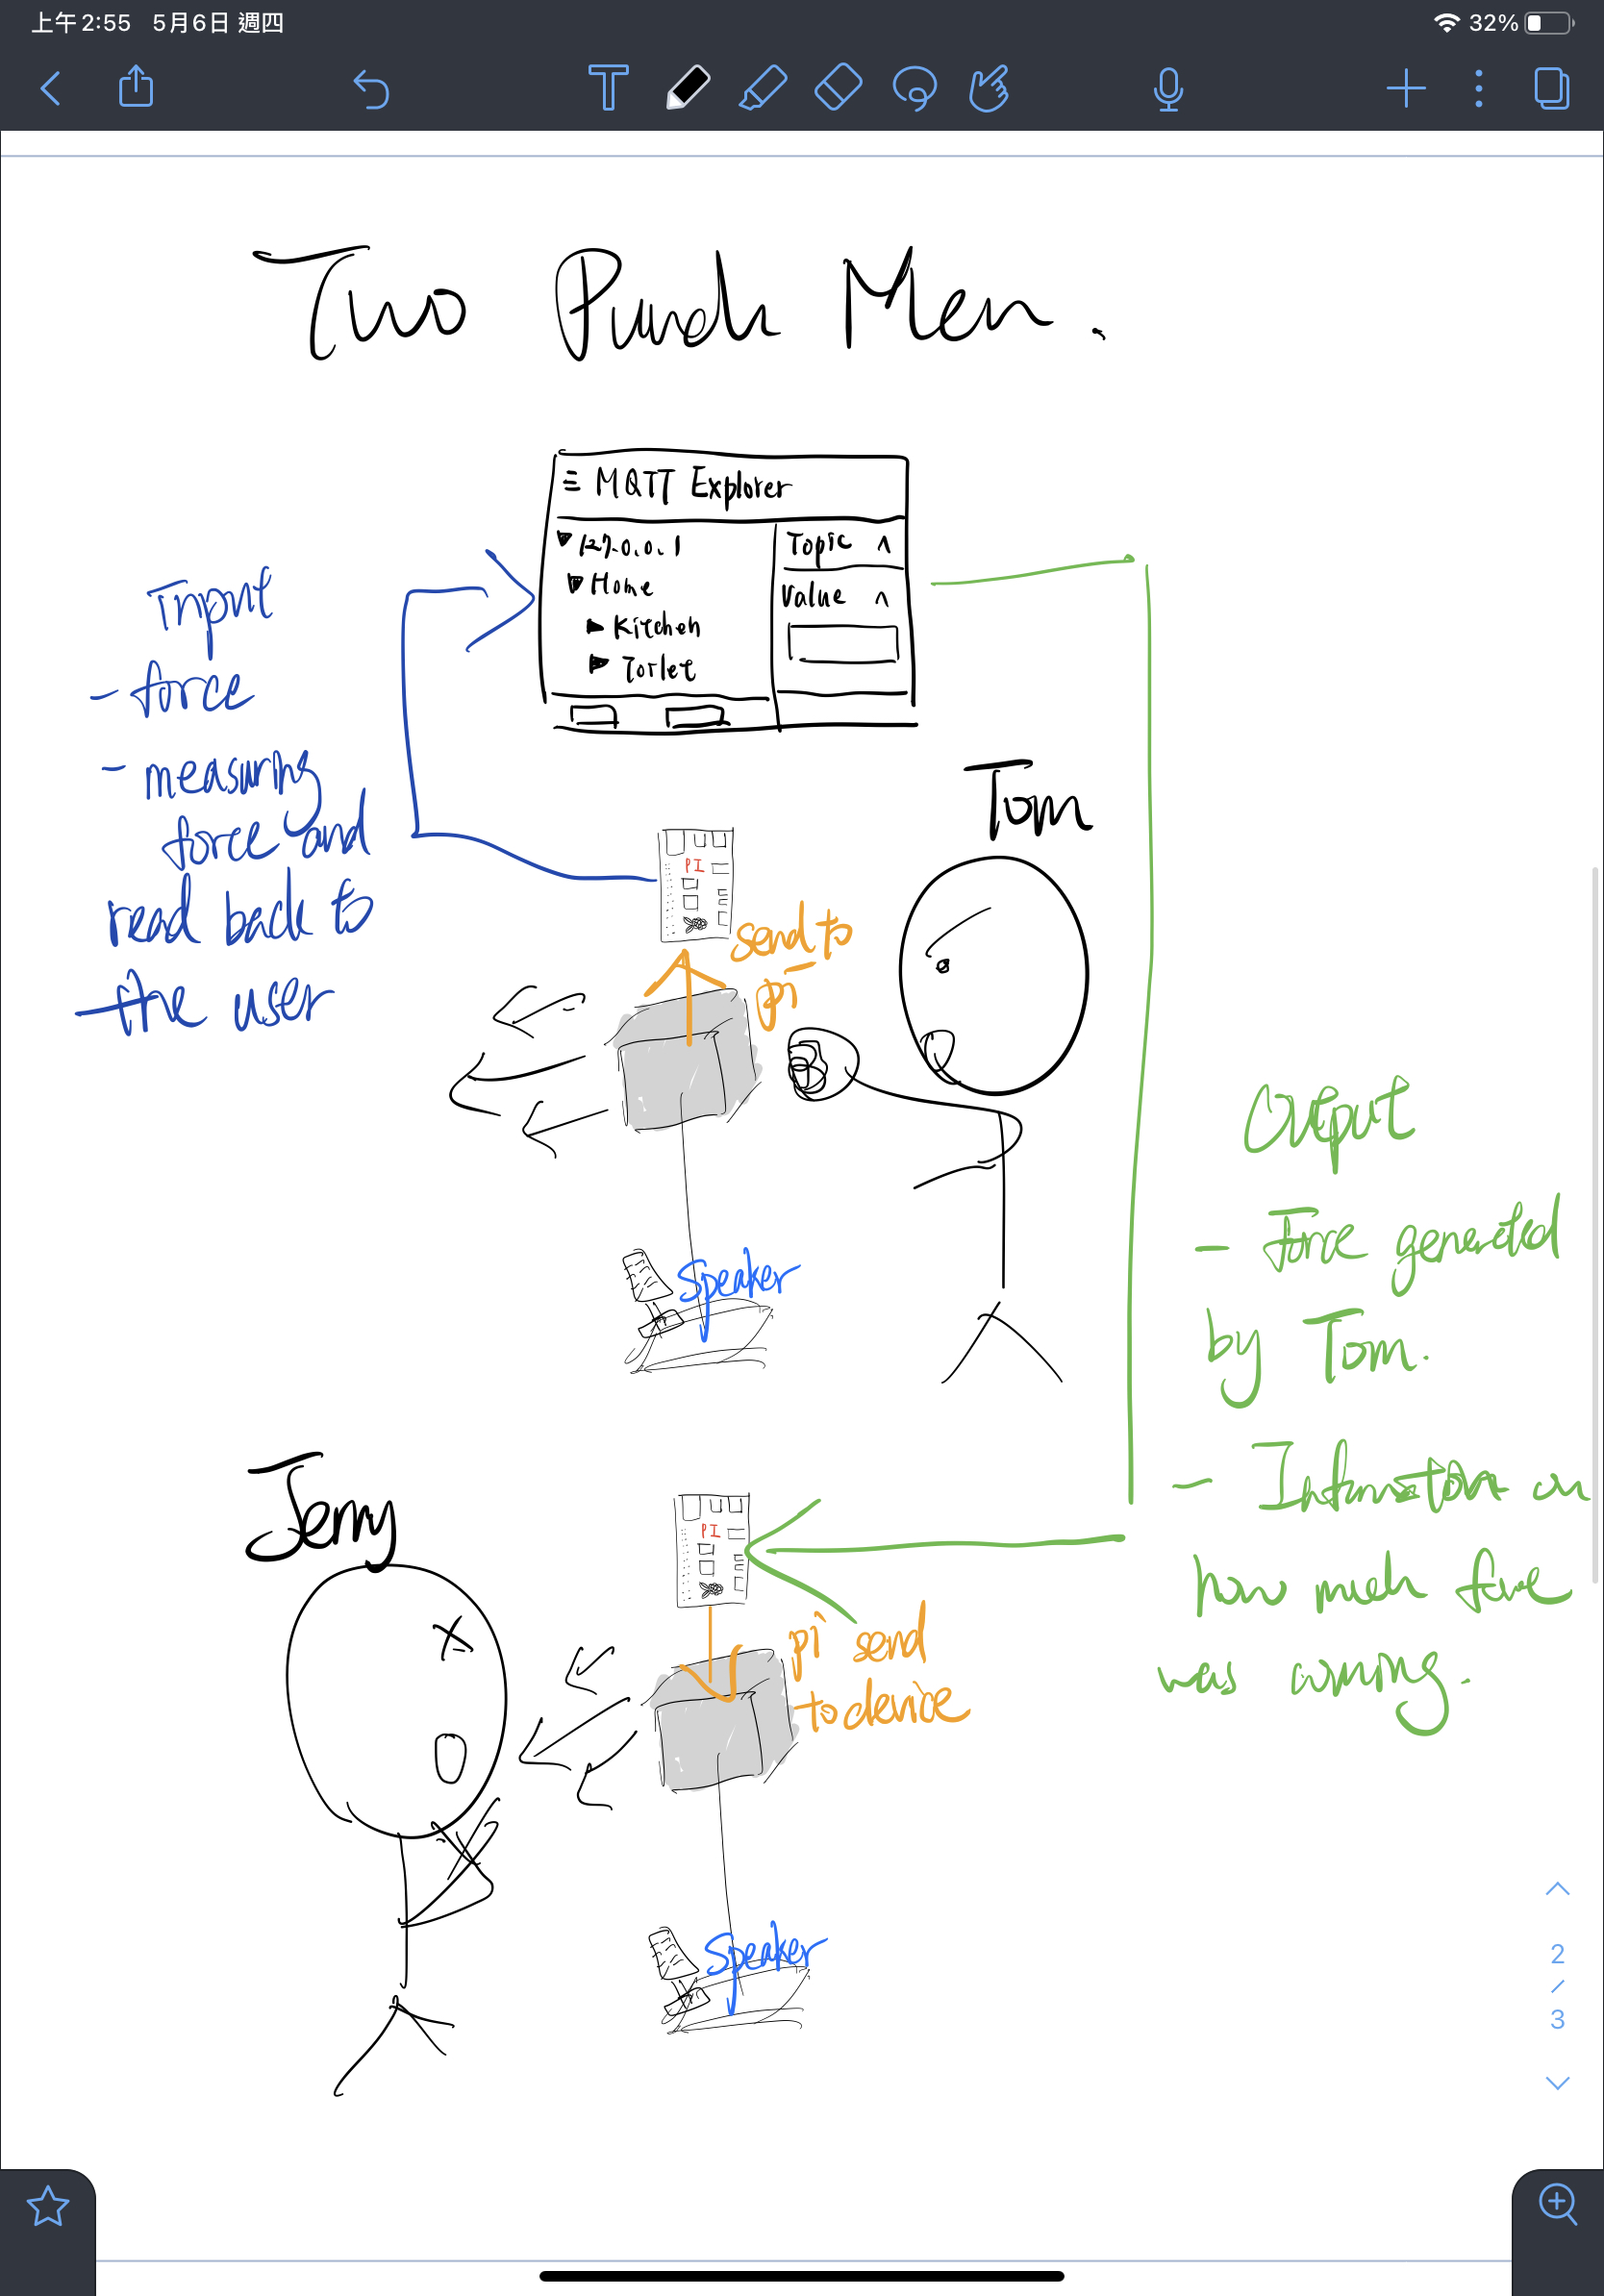 上午2:55 5月6日 週四
32%
Two Punch Men.
MQTT Explorer
127.0.0.1
Home
Kitchen
Toilet
Topic
Value
Input
- force
- measuring
force and
read back to
the user
Tom
PI
send to
pi
Speaker
Output
- Force generated
by Tom.
- Information on
how much force
was coming.
Jerry
PI
pi send
to device
Speaker
2
/
3